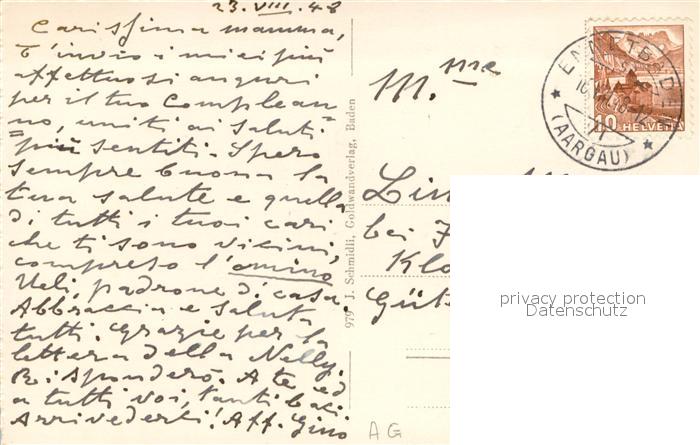 23.VIII.48
Carissima mamma,
t'invio i miei più
affettuosi auguri
per il tuo Complean=
no, uniti ai saluti
più sentiti. Spero
sempre buona la
tua salute e quella
di tutti i tuoi cari
che ti sono vicini,
compreso l'omino
Ueli, padrone di casa.
Abbraccia e saluta
tutti. Grazie per la
lettera della Nelly.
Risponderò. A te ed
a tutti voi, tanti baci
Arrivederti! Aff. Gino
979 J. Schmidli, Goldwandverlag, Baden
M.me
Lin
bei
Klo
Güt
ENNETBADEN
(AARGAU)
10 HELVETIA
privacy protection
Datenschutz
AG